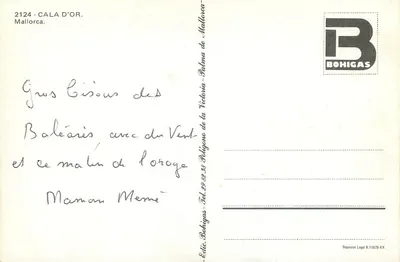 2124 - CALA D'OR.
Mallorca.
Gros bisous des
Baléares, avec du Vent
et ce matin de l'orage
Maman Mémé
Edic. Bohigas - Tel. 29.59.51 Polígono de la Victoria - Palma de Mallorca
B
BOHIGAS
Depósito Legal B.